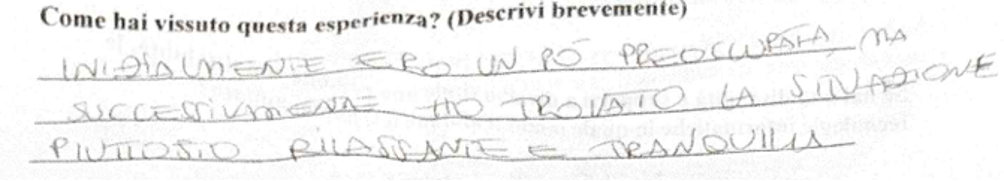 Come hai vissuto questa esperienza? (Descrivi brevemente)
INIZIALMENTE ERO UN PÒ PREOCCUPATA MA
SUCCESSIVAMENTE HO TROVATO LA SITUAZIONE
PIUTTOSTO RILASSANTE E TRANQUILLA